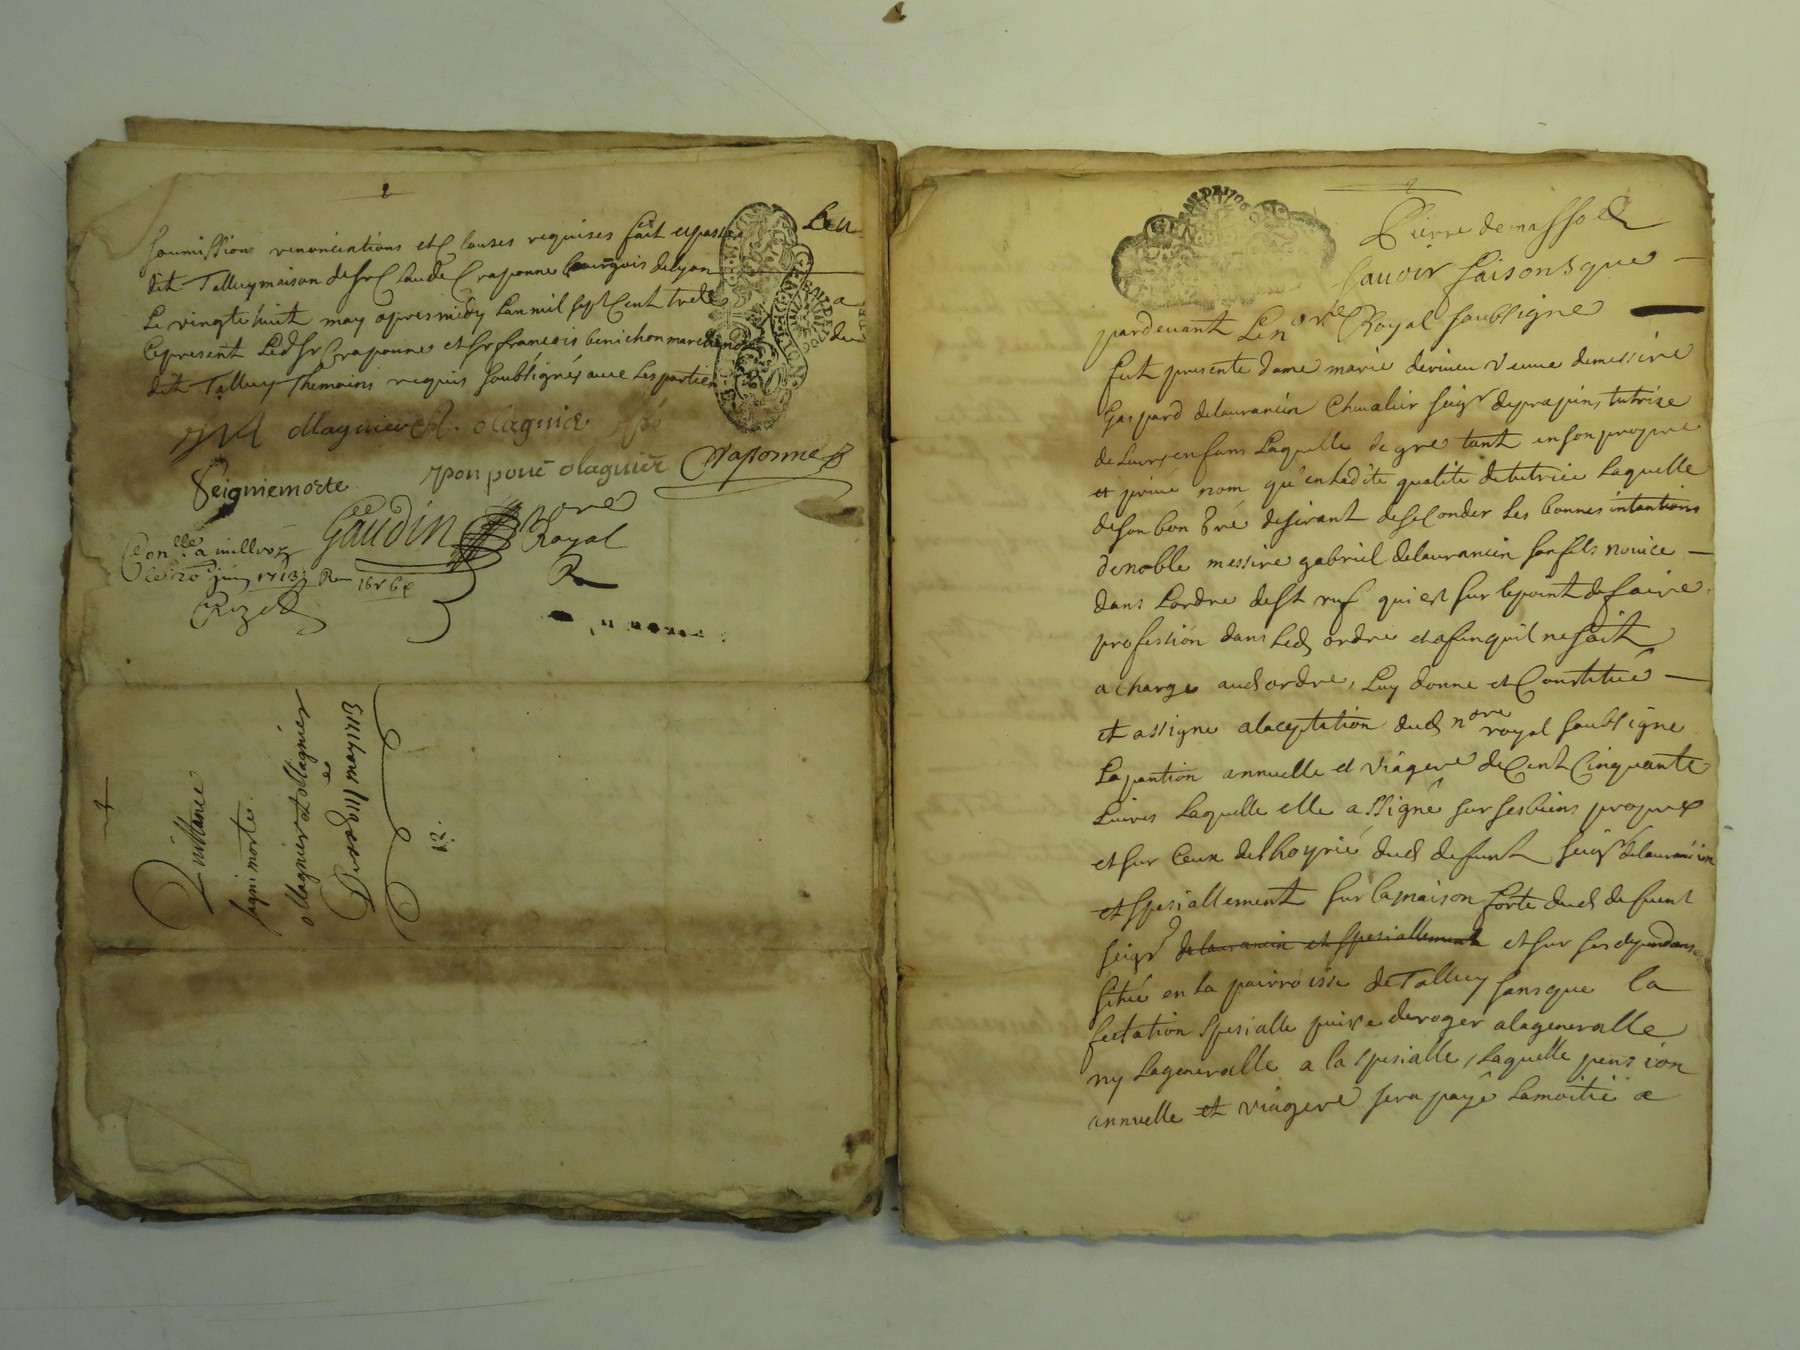 soumissions renonciations et clauses requises fait et passé
dit Talluy maison de sr Claude Craponne bourgois de Lyon
Le vingt huit may apres midy Lan mil sept Cent treze
Cepresent Led sr Craponne et sr francois benichon marchand
dit Talluy Themoins requis soubsignés avec Les parties
ollagnier ollagnier
Seigniemorte
pour pouié olagnier Craponne
Gaudin nore
Royal
Con.lle a millery
le 20 juin 1713 R
Quittance
seigni morte
ollagnier et ollagnier
Du 28 may 1713
12.
Pierre de masso
savoir faisons que
pardevant Le nore Royal soubsigne
fut presente dame marie devineu veuve de messire
Gaspard delaurancin Chevalier seigr deprapins tutrise
de Leurs enfans Laquelle de gre tant en son propre
et privé nom qu'en ladite qualité de tutrice Laquelle
de son bon gré desirant de seconder Les bonnes intantions
de noble messire gabriel delaurancin son fils novice
dans Lordre de st ruf qui est sur le point de faire
profession dans Led ordre et afin quil ne soit
a charge aud ordre, Luy donne et Constitué
et assigne alaceptation dud nore royal soubsigne
La pantion annuelle et viagere de Cent Cinquante
Livres Laquelle elle assigné sur ses biens propres
et sur Ceux de lhoyrié dud defunt seigr delaurancin
et spesiallement sur la maison forte dud defunt
seigr delaurancin et spesiallement et sur ses dependanse
sitüé en la pairroisse de Talluy sans que la
fectation spesialle puisse deroger alageneralle
ny Lageneralle a la spesialle, Laquelle pension
annuelle et viagere sera payé Lamoitié a